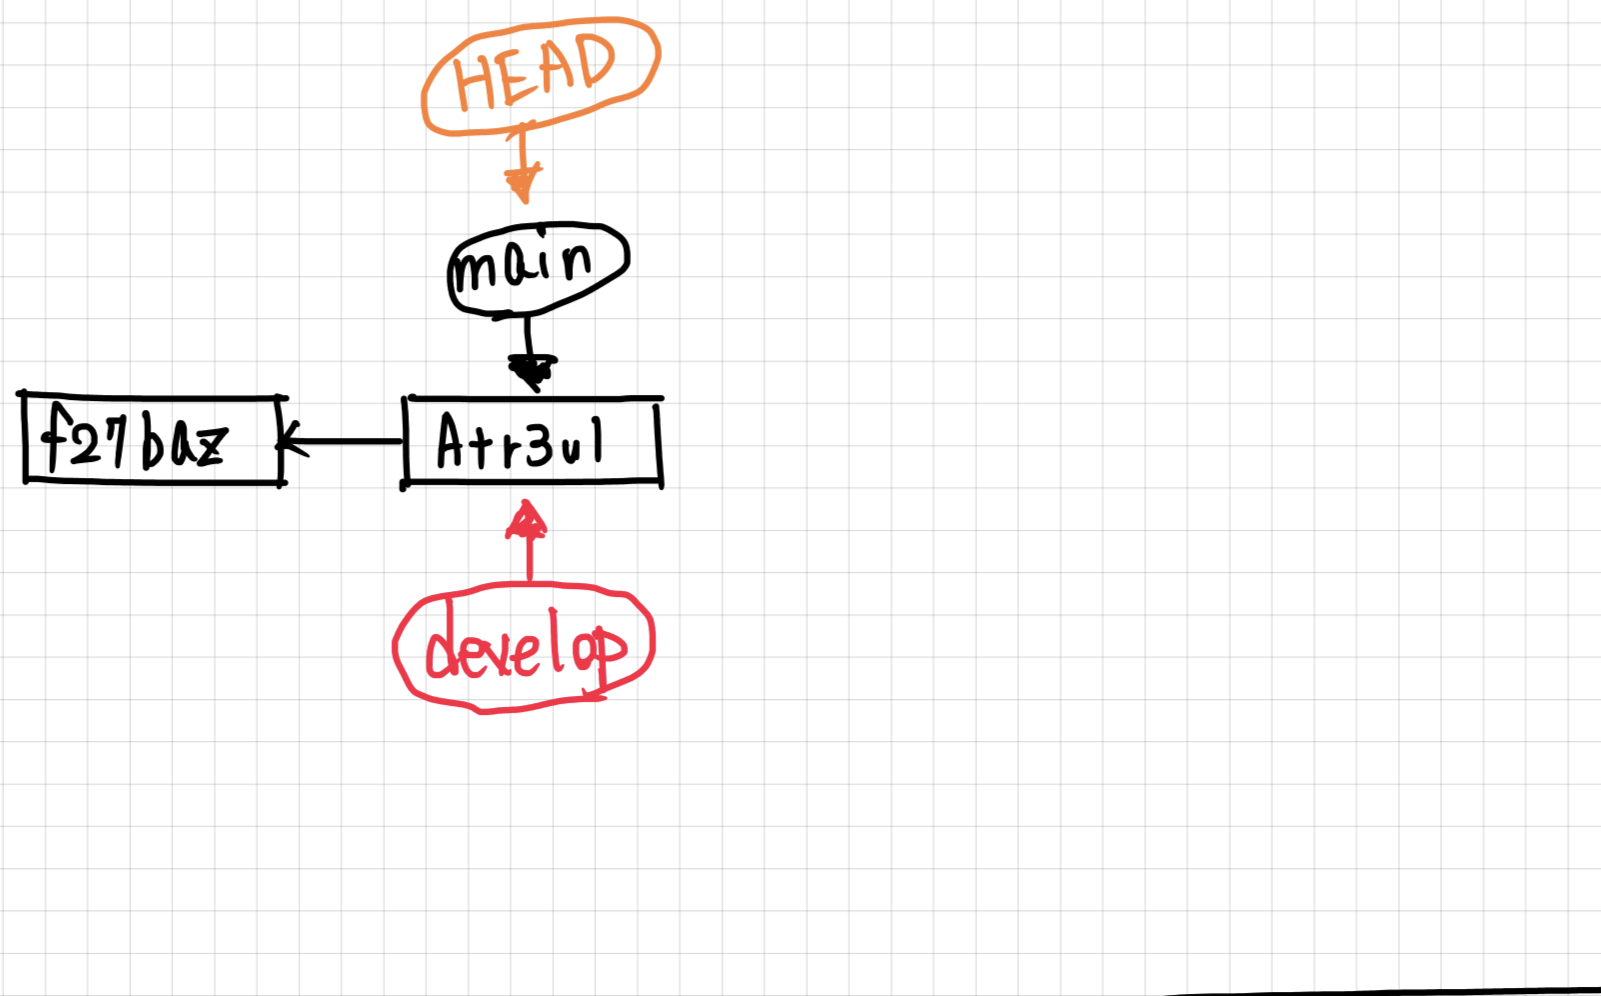 HEAD
main
f27baz
Atr3ul
develop